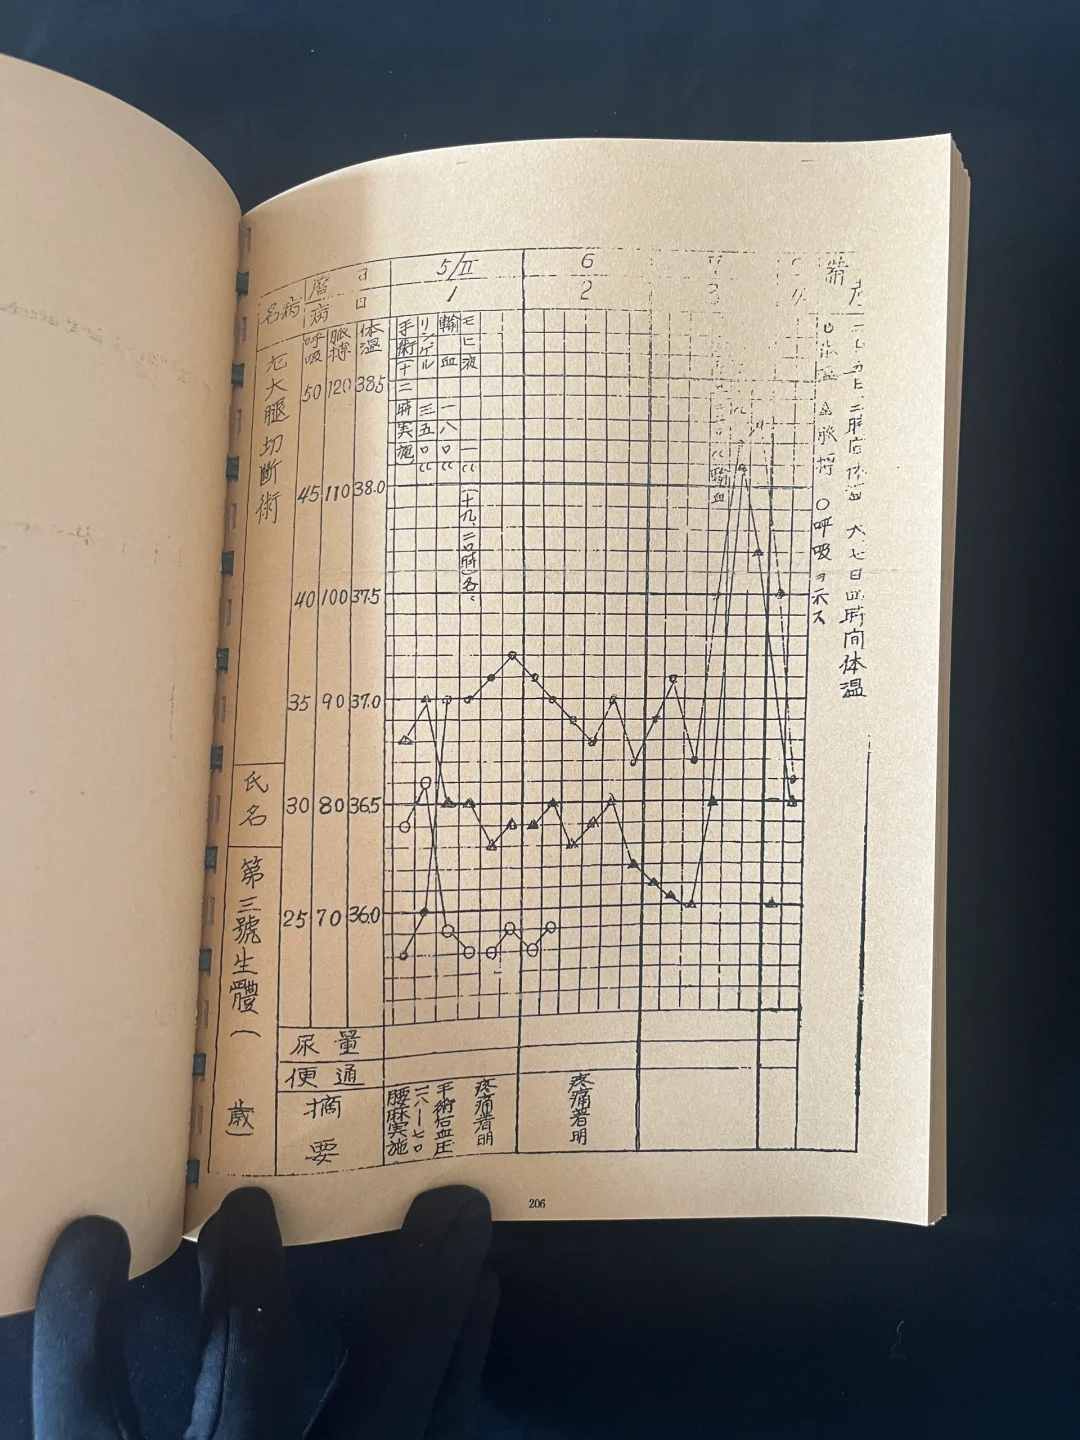 病名
右大腿切斷術
氏名
第三號生體(
歳)
暦日
病日
呼吸 脈搏 体温
5/II 6
1 2 3 4
50 120 38.5
45 110 38.0
40 100 37.5
35 90 37.0
30 80 36.5
25 70 36.0
手術(十二時実施)
リンゲル 三五〇cc
輸血 一八〇cc
モヒ液 一cc(十九、二〇時)各、
cc輸血
尿量
便通
摘要
腰麻実施
手術后血圧
一一八―七〇
疼痛著明
疼痛著明
△脈搏 〇呼吸ヲ示ス
六、七日四時間体温
206